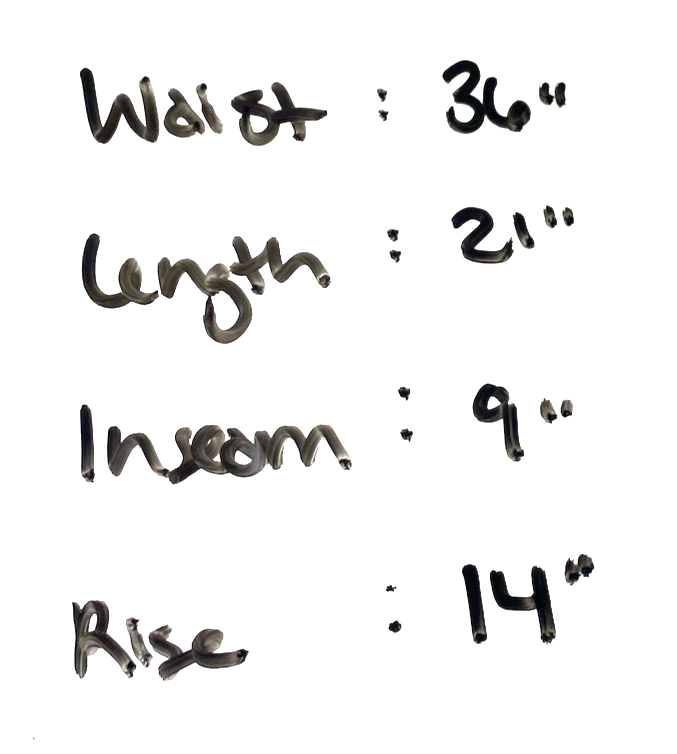 Waist : 36"
Length : 21"
Inseam : 9"
Rise : 14"